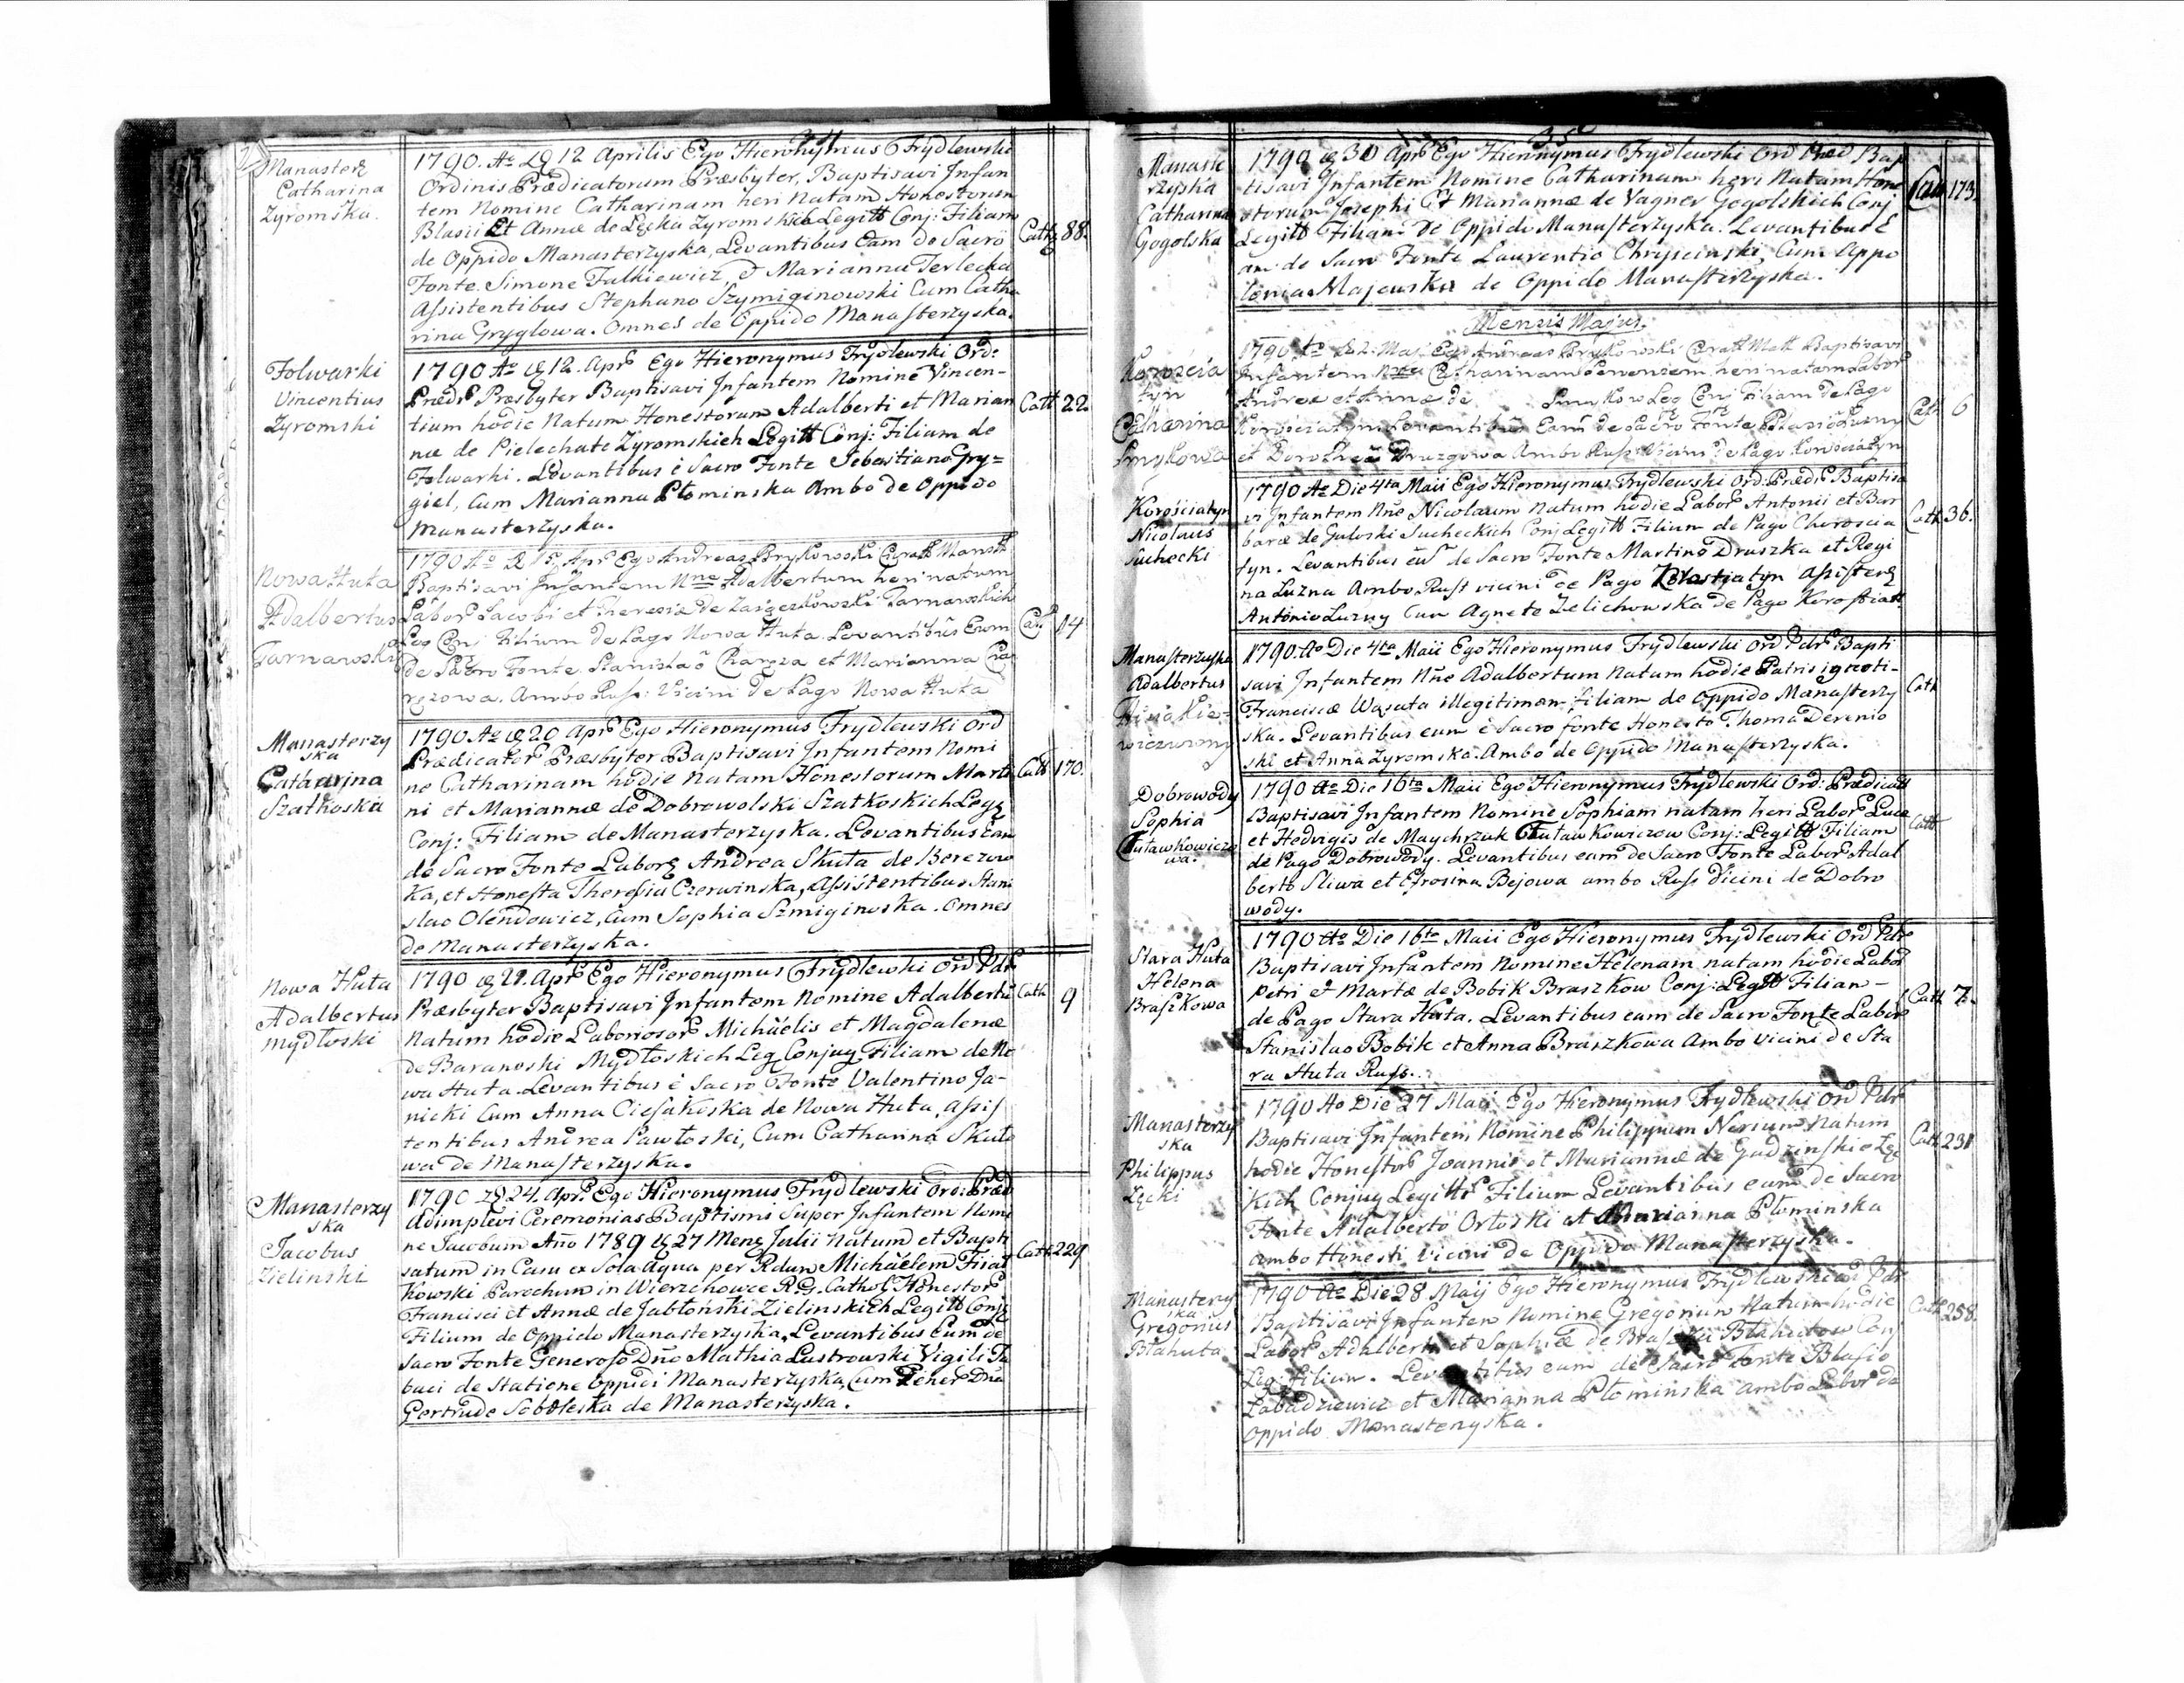 Manasterz
Catharina
Zyromska.
1790. Ao D 12 Aprilis Ego Hieronymus Frydlewski
Ordinis Prædicatorum Præsbyter, Baptisavi Infan
tem Nomine Catharinam heri Natam Honestorum
Blasii Et Annæ de Lęcka Zyromskich Legitt Conj: Filiam
de Oppido Manasterzyska, Levantibus Eam de Sacro
Fonte Simone Falkiewicz, & Marianna Terlecka
Assistentibus Stephano Szymiginowski Cum Catha
rina Gryglowa. Omnes de Oppido Manasterzyska.
Cath 88.
Folwarki
Vincentius
Zyromski
1790 Ao D 12. Apr Ego Hieronymus Frydlewski Ord:
Præd Præsbyter Baptisavi Infantem Nomine Vincen-
tium hodie Natum Honestorum Adalberti et Marian
næ de Pielechate Zyromskich Legitt Conj: Filium de
Folwarki. Levantibus è Sacro Fonte Sebastiano Gry=
giel, Cum Marianna Płominska Ambo de Oppido
Manasterzyska.
Cath 22.
Nowa Huta
Adalbertus
Tarnawski
1790 Ao D 15 Apr Ego Andreas Brykowski Curat Manast
Baptisavi Infantem Nne Adalbertum heri natum
Labor Jacobi et Theresiæ de Tarnawskich
Leg Conj Filium de Pago Nowa Huta Levantibus Eum
de Sacro Fonte Stanislao Charęza et Marianna Cha
ręzowa. Ambo Rust: Vicini de Pago Nowa Huta
Cath 14
Manasterzy
ska
Catharina
Szatkoska
1790 Ao D 20 Apr Ego Hieronymus Frydlewski Ord
Prædicator Præsbyter Baptisavi Infantem Nomi
ne Catharinam hodie Natam Honestorum Marti
ni et Mariannæ de Dobrowolski Szatkoskich Leg
Conj: Filiam de Manasterzyska. Levantibus Eam
de Sacro Fonte Labor Andrea Skuta de Berezow
ka, et Honesta Theresia Czerwinska, Assistentibus Stani
slao Olendowicz, Cum Sophia Szmiginoska. Omnes
de Manasterzyska.
Cath 170.
Nowa Huta
Adalbertus
Mydłoski
1790 D 21. Apr Ego Hieronymus Frydlewski Ord Pdr
Præsbyter Baptisavi Infantem Nomine Adalbertū
Natum hodie Laborosor Michaëlis et Magdalenæ
de Baranoski Mydłoskich Leg Conjug: Filium de No
wa Huta. Levantibus è Sacro Fonte Valentino Ja-
nicki Cum Anna Ciesakoska de Nowa Huta, Assis
tentibus Andrea Pawłoski, Cum Catharina Skuto
wa de Manasterzyska.
Cath 9
Manasterzy
ska
Jacobus
Zielinski
1790 D 24. Apr. Ego Hieronymus Frydlewski Ord: Præd
Adimplevi Ceremonias Baptismi Super Infantem Nomi
ne Jacobum Año 1789 D 27 Mens Julii Natum et Bapti
satum in Casu ex Sola Aqua per Rdum Michaëlem
kowski Parochum in Wierzchowce R. G. Cathol Honestor
Francisci et Annæ de Jabłoński Zielinskich Legitt Conj
Filium de Oppido Manasterzyska, Levantibus Eum de
Sacro Fonte Generoso Dño Mathia Lustrowski Vigili Ta
baci de Statione Oppidi Manasterzyska, Cum Gener Dña
Gertrude Soboleska de Manasterzyska.
Cath 229
35
Manaste
rzyska
Catharina
Gogolska
1790 D 30 Apr Ego Hieronymus Frydlewski Ord Præd Bap
tisavi Infantem Nomine Catharinam heri Natam Hone
storum Josephi Et Mariannæ de Vagner Gogolskich Conj
Legitt Filiam de Oppido Manasterzyska. Levantibus E
am de Sacro Fonte Laurentio Chryscinski, Cum Appo
lonia Majewska de Oppido Manasterzyska.
Cath 173.
Mensis Majus.
Korościa
tyn
Catharina
Smykowa
1790 Ao D 2. Maj Ego Andreas Brykowski Curatt Baptisavi
Infantem Nne Catharinam heri natam Labor
Andreæ et Annæ de Smyków Leg Conj Filiam de Pago
Korościatyn Levantibus Eam de Sacro Fonte Łuzny
et Dorothea Druzgowa Ambo Rust Vicini de Pago Korościatyn
Cath 6
Korościatyn
Nicolaus
Suchecki
1790 Ao Die 4ta Maii Ego Hieronymus Frydlewski Ord: Præd Baptisa
vi Infantem Nñe Nicolaum Natum hodie Labor Antonii et Bar
baræ de Guloski Sucheckich Conj Legitt Filium de Pago Chorościa
tyn. Levantibus eū de Sacro Fonte Martino Druszka et Regi
na Luzna Ambo Rust vicini de Pago assisten
Antonio Luzny Cum Agnete Zelichowska de Pago Korostiatt
Cath 36.
Manasterzyska
Adalbertus
1790. Ao Die 4ta Maii Ego Hieronymus Frydlewski Ord Pdr Bapti
savi Infantem Nñe Adalbertum Natum hodie Patris ignoti-
Franciscæ Wąsata illegitimum filium de Oppido Manasterzy
ska. Levantibus eum è Sacro fonte Honesto Thoma Derenio
ski et Anna Zyromska. Ambo de Oppido Manasterzyska.
Cath
Dobrowody
Sophia
Tutawkowiczo
wa.
1790 Ao Die 16ta Maii Ego Hieronymus Frydlewski Ord: Prædicatt
Baptisavi Infantem Nomine Sophiam natam heri Labor Lucæ
et Hedvigis de Maychrzak Tutawkowiczow Conj: Legitt Filiam
de Pago Dobrowody. Levantibus eam de Sacro Fonte Labor Adal
berto Sliwa et Efrosina Bejowa ambo Russ Vicini de Dobro
wody.
Catt
Stara Huta
Helena
Braszkowa
1790 Ao Die 16ta Maii Ego Hieronymus Frydlewski Ord Pdr
Baptisavi Infantem Nomine Helenam natam hodie Labor
Petri et Martæ de Bobik Braszkow Conj: Legitt Filian-
de Pago Stara Huta. Levantibus eam de Sacro Fonte Labor
Stanislao Bobik et Anna Braszkowa Ambo vicini de Sta
ra Huta Russ.
Cath 7.
Manasterzy
ska
Philippus
Łęcki
1790 Ao Die 27 Maii Ego Hieronymus Frydlewski Ord Pdr
Baptisavi Infantem Nomine Philippum Nerium Natum
hodie Honestor Joannis et Mariannæ de Gudzinskie Łęc
kich Conjug Legitt Filium Levantibus eum de Sacro
Fonte Adalberto Ortoski et Marianna Płominska
ambo Honesti vicini de Oppido Manasterzyska.
Cath 231
Manasterzy
ska
Gregorius
Błahuta
1790 Ao Die 28 Maij Ego Hieronymus Frydlewski Ord Pdr
Baptisavi Infantem Nomine Gregorium Natum hodie
Labor Adalberti et Sophiæ de Błahutow Conj
Leg: Filium. Levantibus eum de Sacro Fonte Blasio
Labudziewicz et Marianna Płominska ambo Labor de
Oppido Manasterzyska.
Cath 258.